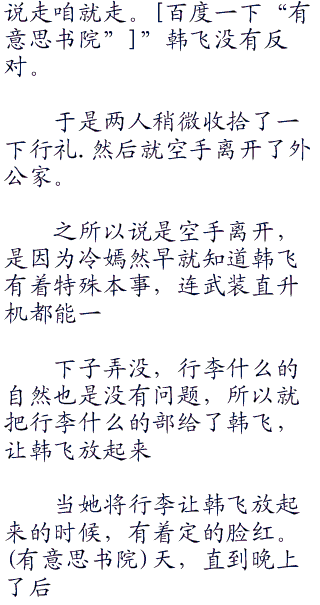 说走咱就走。[百度一下“有
意思书院”]”韩飞没有反
对。
于是两人稍微收拾了一
下行礼.然后就空手离开了外
公家。
之所以说是空手离开，
是因为冷嫣然早就知道韩飞
有着特殊本事，连武装直升
机都能一
下子弄没，行李什么的
自然也是没有问题，所以就
把行李什么的部给了韩飞，
让韩飞放起来
当她将行李让韩飞放起
来的时候，有着定的脸红。
(有意思书院)天，直到晚上
了后